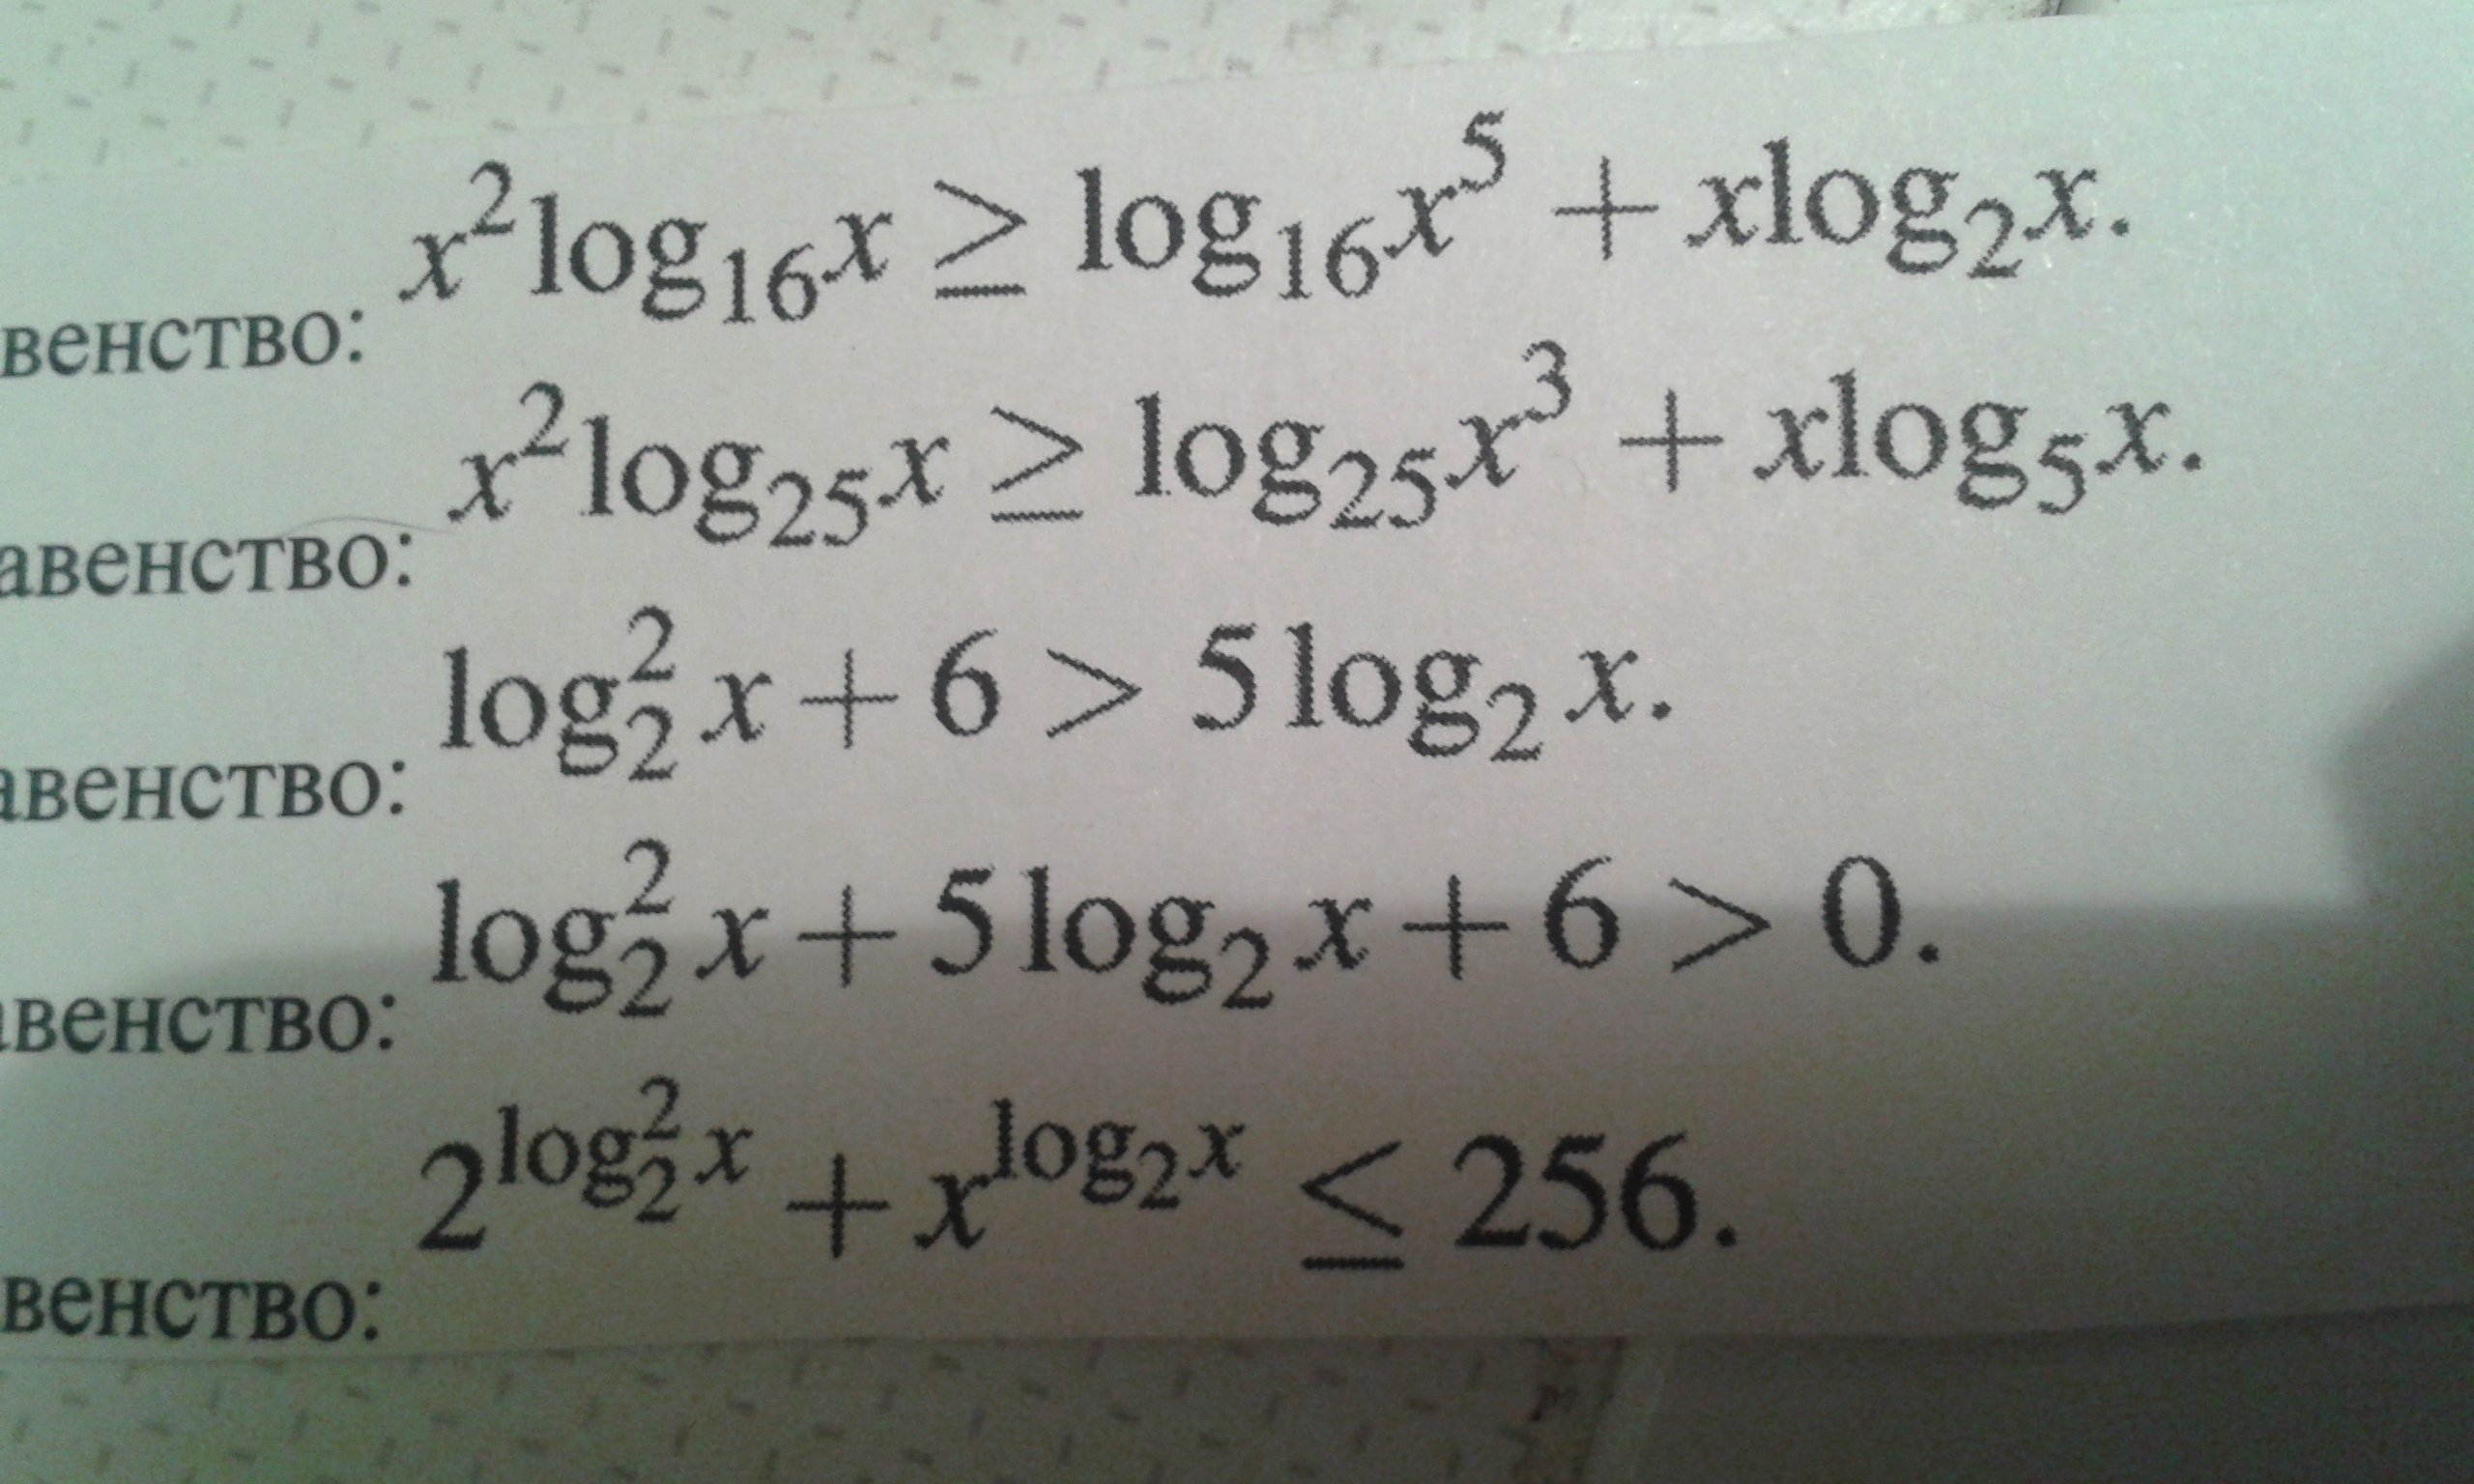 венство: x²log₁₆x ≥ log₁₆x⁵ + xlog₂x.
авенство: x²log₂₅x ≥ log₂₅x³ + xlog₅x.
авенство: log₂²x + 6 > 5log₂x.
авенство: log₂²x + 5log₂x + 6 > 0.
венство: 2^(log₂²x) + x^(log₂x) ≤ 256.